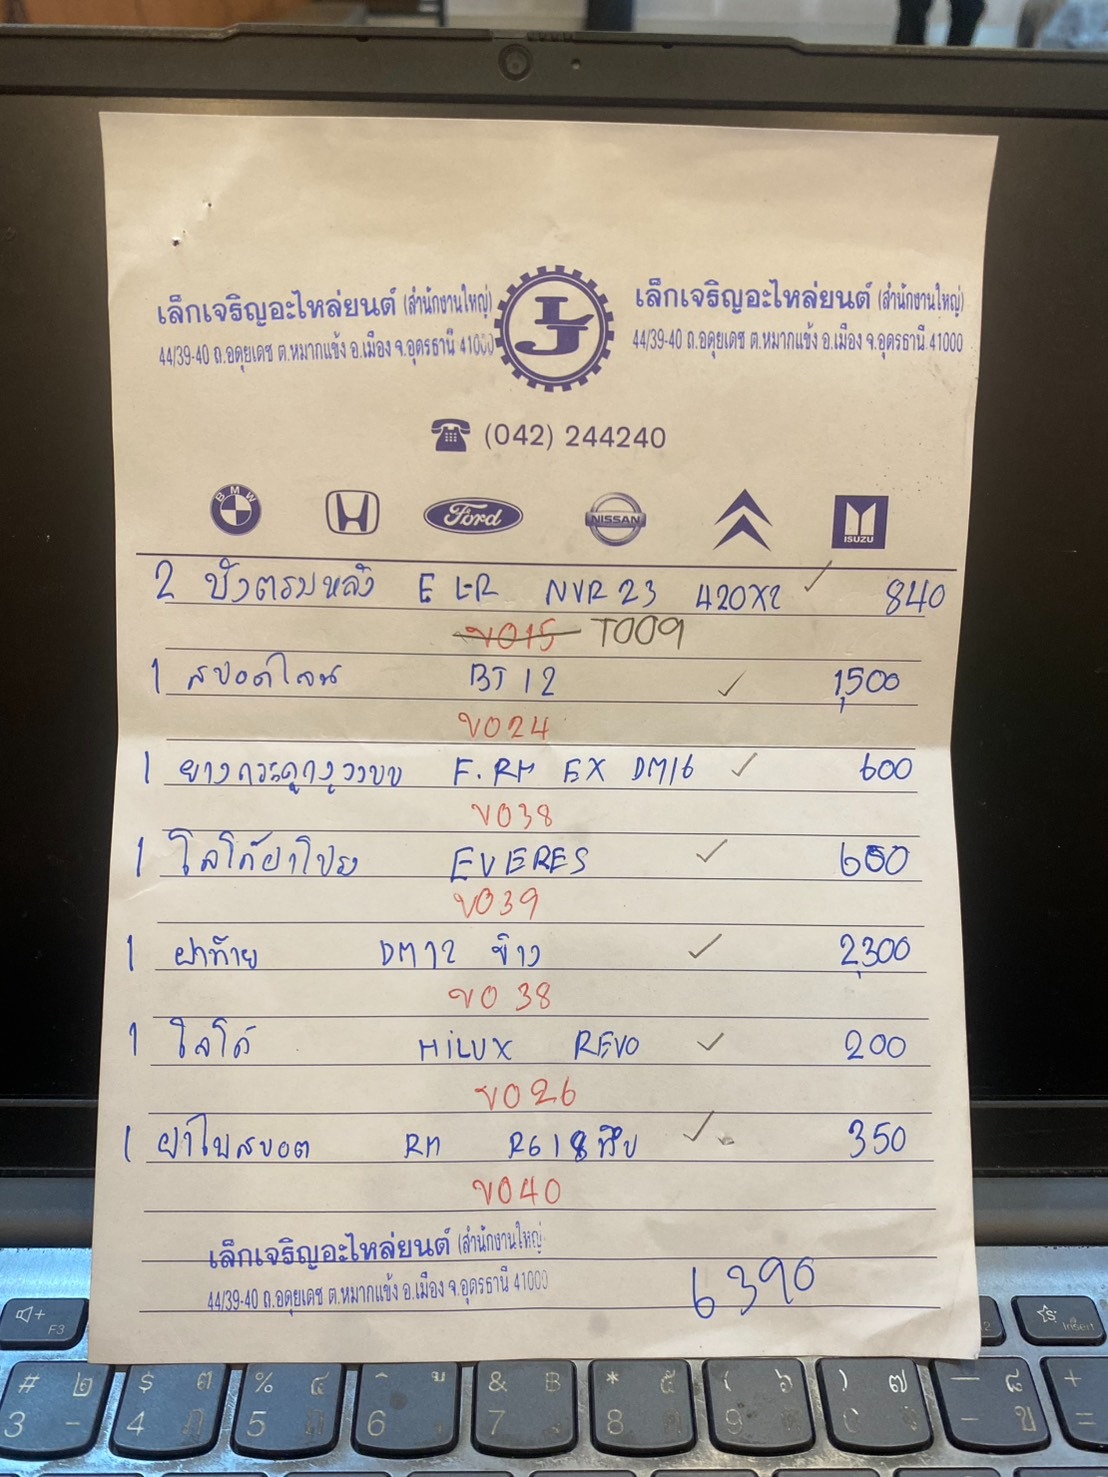 เล็กเจริญอะไหล่ยนต์ (สำนักงานใหญ่)
44/39-40 ถ.อดุยเดช ต.หมากแข้ง อ.เมือง จ.อุดรธานี 41000
LJ
เล็กเจริญอะไหล่ยนต์ (สำนักงานใหญ่)
44/39-40 ถ.อดุยเดช ต.หมากแข้ง อ.เมือง จ.อุดรธานี 41000
(042) 244240
BMW H Ford NISSAN ISUZU
2 บังตรมหลัง NVR 23 420X2 840
ขO15 T009
1 สปอตไลน์ BT 12 1,500
ขO24
1 ยางกระดูกงู F.RM EX DM16 600
ขO38
1 โลโก้ฝาโปรง EVERES 600
ขO39
1 ฝาท้าย DM72 ข้าง 2,300
ขO38
1 โลโก้ HiLUX REVO 200
ขO26
1 ฝาไบสปอต RM R618 ทึบ 350
ขO40
เล็กเจริญอะไหล่ยนต์ (สำนักงานใหญ่
44/39-40 ถ.อดุยเดช ต.หมากแข้ง อ.เมือง จ.อุดรธานี 41000
6390
F3
Insert
# ๒ 3 -
$ ๓ 4 ภ
% ๔ 5 ถ
6
& ฿ 7
* ๕ 8 ค
( ๖ 9 ต
) ๗ 0 จ
_ ๘ - ข
+ =